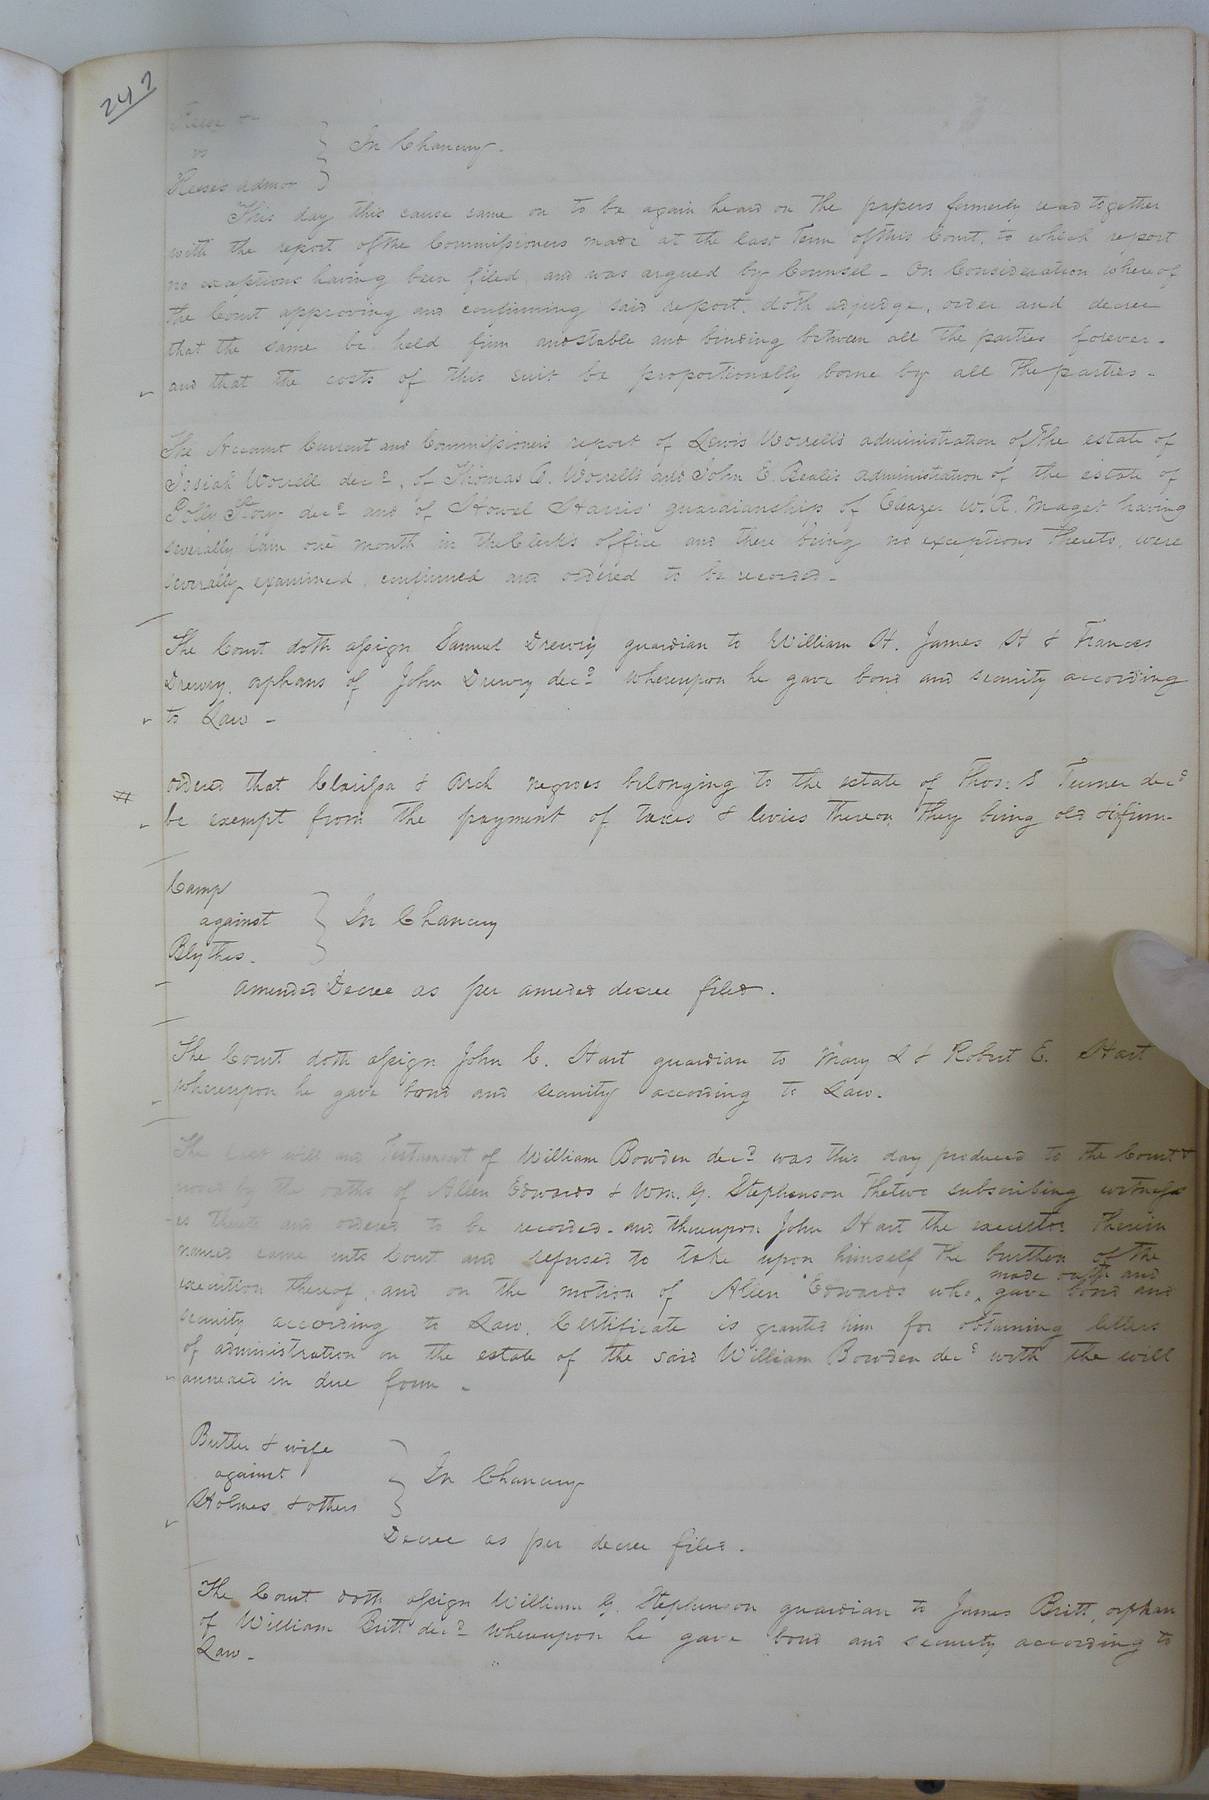 247
Reese &c
vs
Reese's admor } In Chancery.
This day this cause came on to be again heard on the papers formerly read together
with the report of the Commissioners made at the last Term of this Court, to which report
no exceptions having been filed, and was argued by Counsel - On Consideration whereof
the Court approving and confirming said report, doth adjudge, order and decree
that the same be held firm and stable and binding between all the parties forever -
and that the costs of this suit be proportionably borne by all the parties -
The Account Current and Commissioners report of Lewis Worrells administration of the estate of
Josiah Worrell decd, of Thomas D. Worrells and John E. Beales administration of the estate of
Polly Story decd and of Howel Harris' guardianship of Eleazer W. R. Maget having
severally lain one month in the Clerks office and there being no exceptions thereto, were
severally examined, confirmed and ordered to be recorded -
The Court doth assign Samuel Drewry guardian to William H. James H & Frances
Drewry, orphans of John Drewry decd whereupon he gave bond and security according
to Law -
# ordered that Clarissa & Arch negroes belonging to the estate of Thos: S Turner decd
be exempt from the payment of taxes & levies thereon they being old & infirm -
Camp
against
Blythes. } In Chancery
Amended Decree as per amended decree filed.
The Court doth assign John C. Hart guardian to Mary L & Robert E. Hart
whereupon he gave bond and security according to Law.
The last will and Testament of William Bowden decd was this day produced to the Court &
proved by the oaths of Allen Edwards & Wm. G. Stephenson the two subscribing witness
es thereto and ordered to be recorded - and thereupon John Hart the executor therein
named came into Court and refused to take upon himself the burthen of the
made oath and
execution thereof, and on the motion of Allen Edwards who ^ gave bond and
security according to Law, Certificate is granted him for obtaining letters
of administration on the estate of the said William Bowden decd with the will
annexed in due form -
Butler & wife
against
Holmes & others } In Chancery
Decree as per decree filed.
The Court doth assign William G. Stephenson guardian to James Britt, orphan
of William Britt decd whereupon he gave bond and security according to
Law -